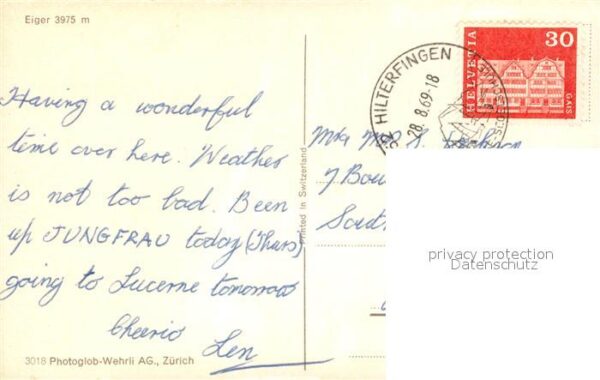 Eiger 3975 m
Having a wonderful
time over here. Weather
is not too bad. Been
up JUNGFRAU today (Thurs)
going to Lucerne tomorrow
Cheerio
Len
3018 Photoglob-Wehrli AG., Zürich
Printed in Switzerland
HILTERFINGEN
28.8.69-18
HELVETIA
30
GAIS
7 Bou
South
privacy protection
Datenschutz